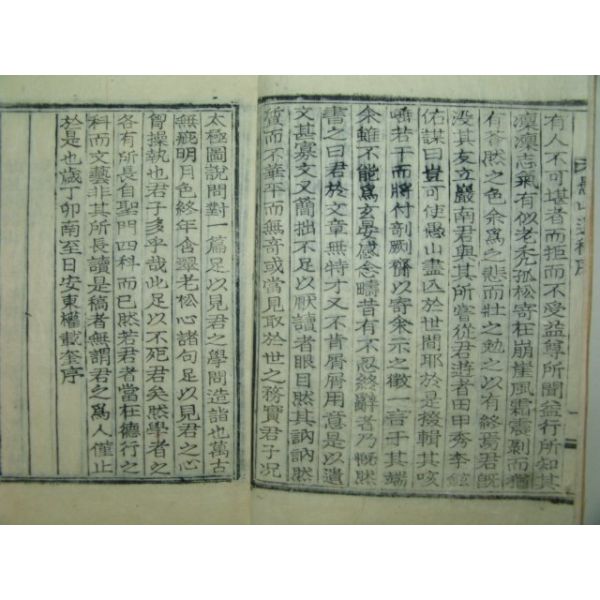 有人不可堪者而拒而不受益尊所聞益行所知其
凜凜志氣有似老禿孤松寄在崩崖風霜震剝而猶
有蒼然之色余爲之悲而壯之勉之以有終焉君旣
沒其友立巖南君與其所嘗從君遊者田甲秀李鉉
佑謀曰豈可使愚山盡亡於世間耶於是搜輯其咳
唾若干而將付剞劂齎以寄余示之徵一言于其端
余雖不能爲玄晏感念疇昔有不忍終辭者乃慨然
書之曰君於文章無特才又不肯屑屑用意是以遺
文甚寡文又簡拙不足以厭讀者眼目然其訥訥然
質而不華平而無奇或當見取於世之務實君子況
太極圖說問對一篇足以見君之學問造詣也萬古
無疵明月色終年含翠老松心諸句足以見君之心
胷操執也君子多乎哉此足以不死君矣然學者之
各有所長自聖門四科而已然若君者當在德行之
科而文藝非其所長讀是稿者無謂君之爲人僅止
於是也歲丁卯南至日安東權載奎序